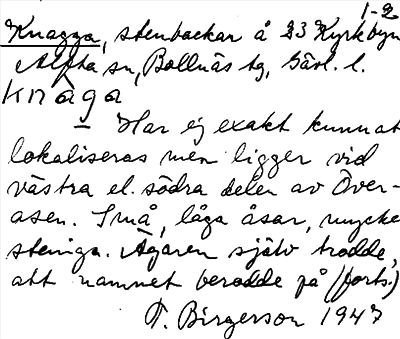 1-2
Knagga, stenbackar å 23 Kyrkbyn
Alfta sn, Bollnäs tg, Gävl. l.
knàga
– Har ej exakt kunnat
lokaliseras men ligger vid
västra el. södra delen av Över-
åsen. Små, låga åsar, mycke
steniga. Ägaren själv trodde,
att namnet berodde på (forts.)
T. Birgerson 1947